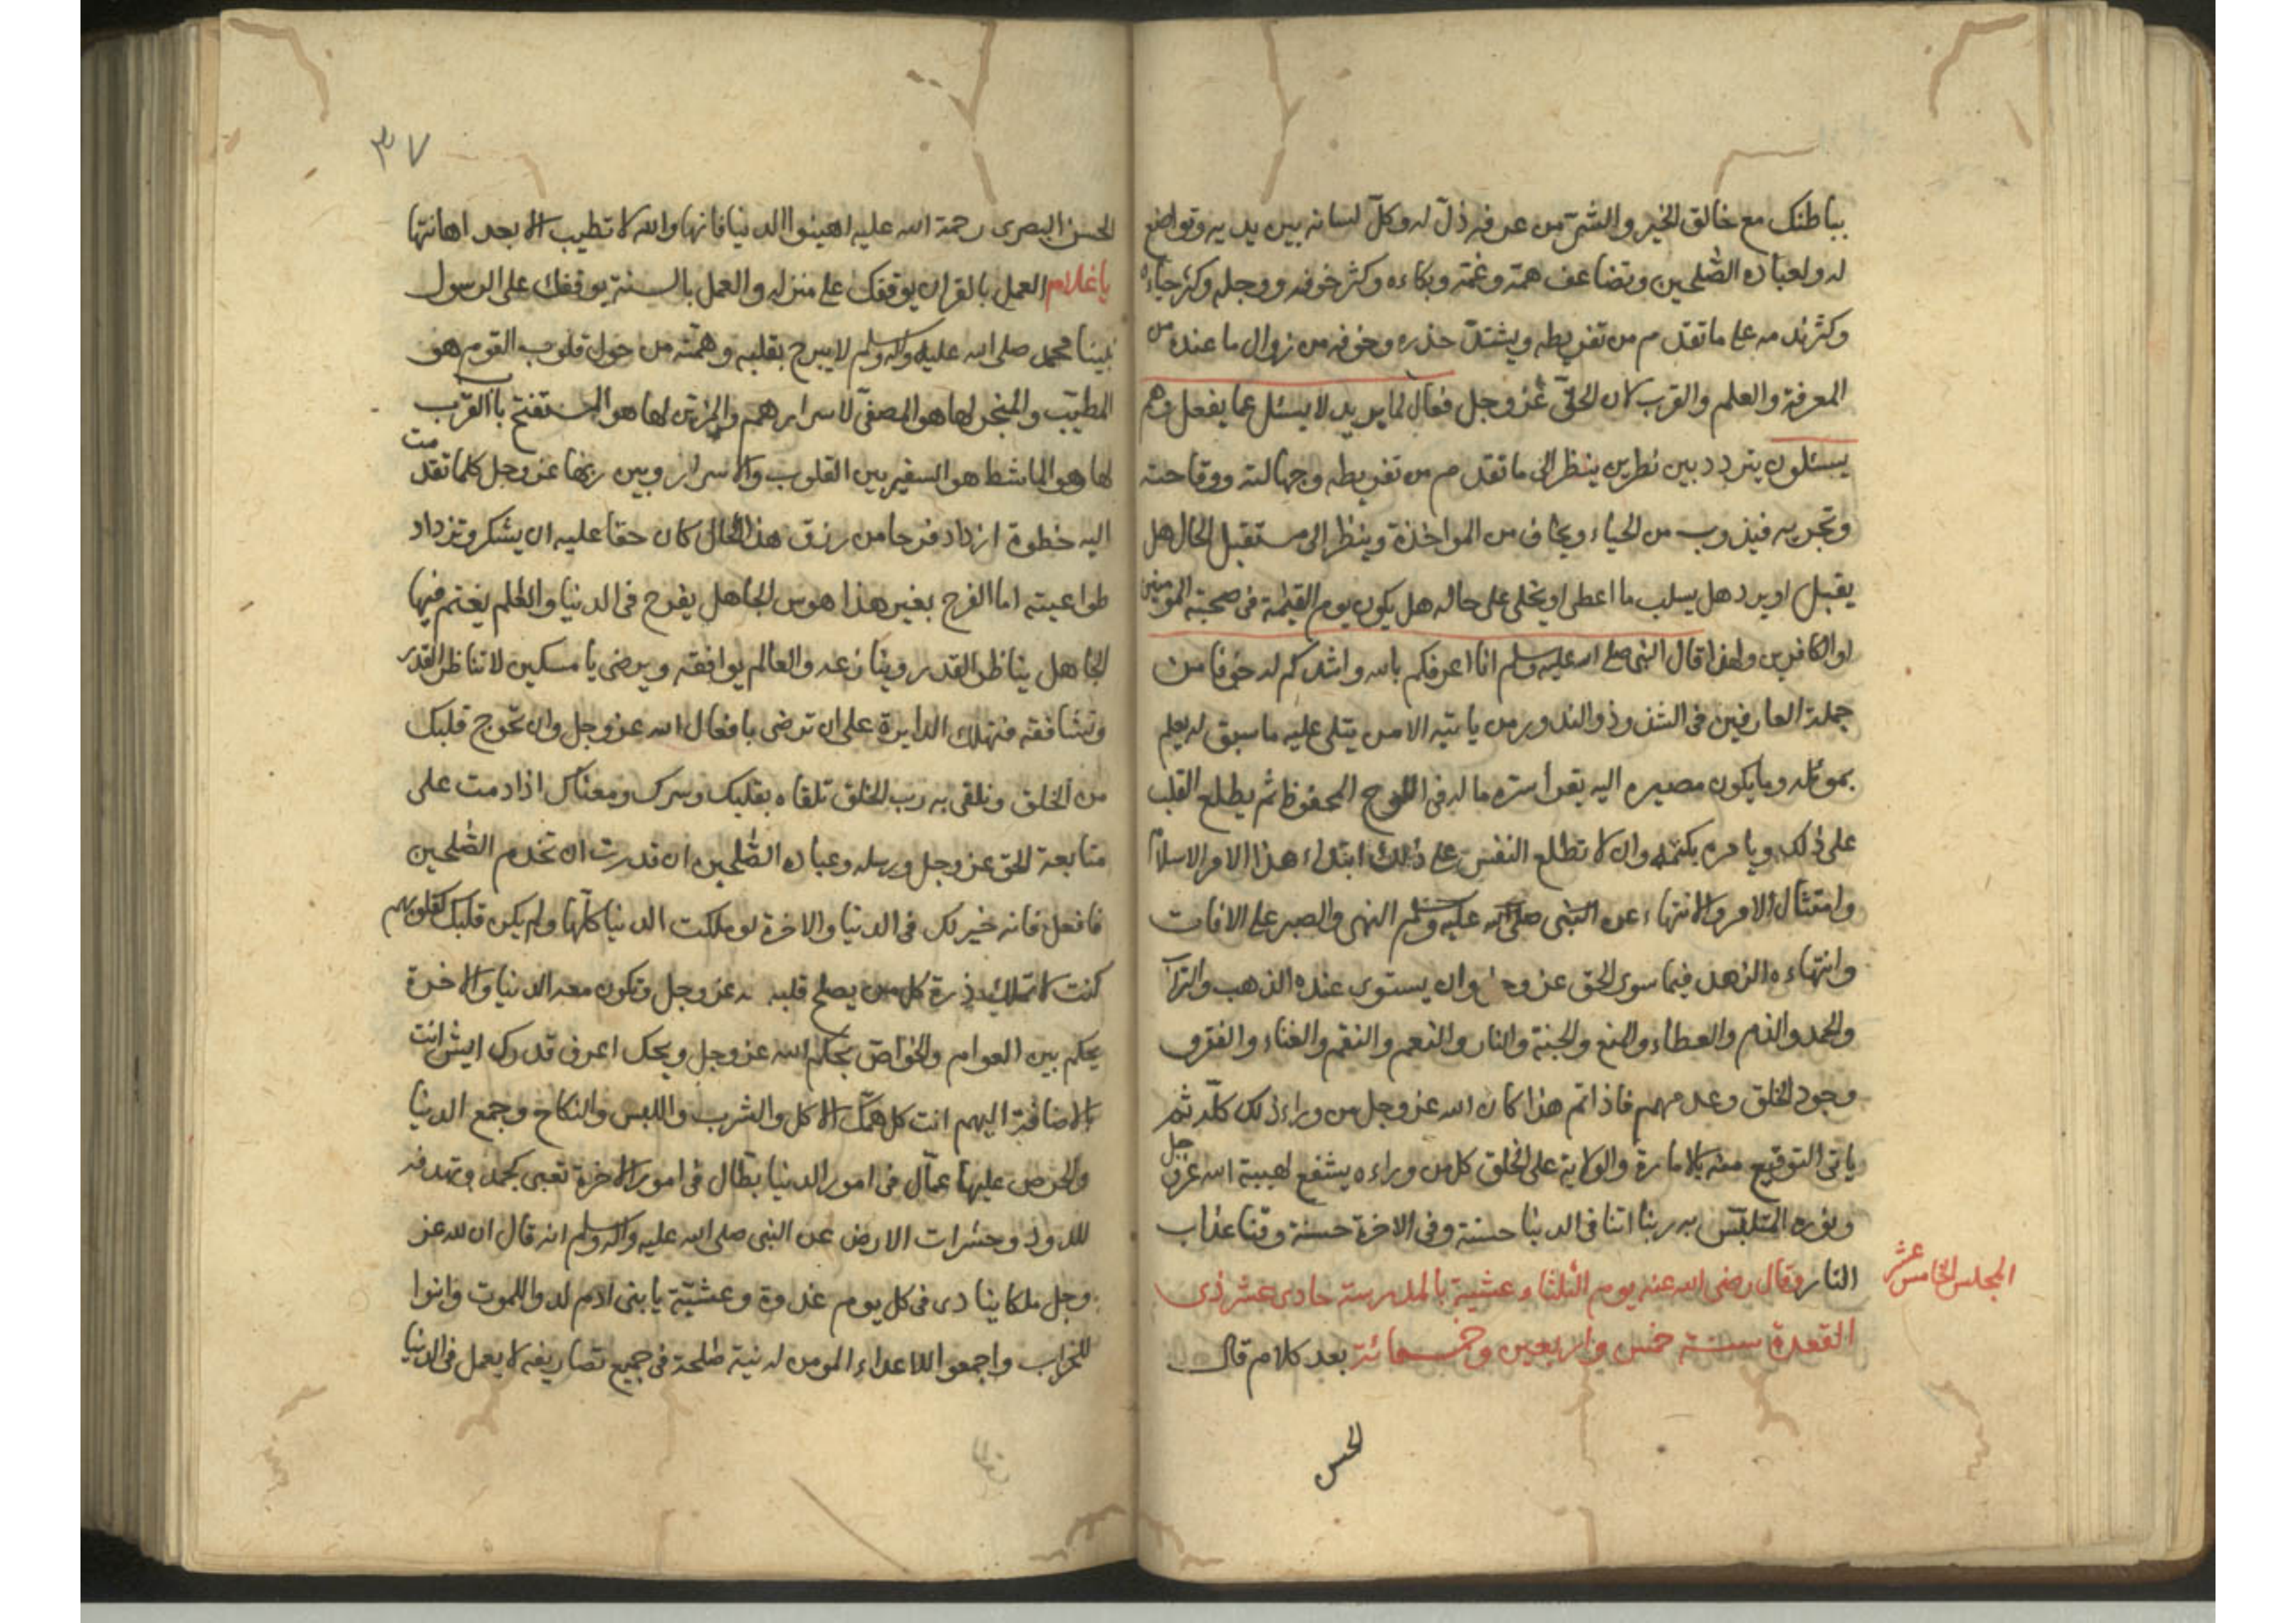 بباطنك مع خالق الخير والشر من عرفه ذل له وكل لسانه بين يديه وتواضع
له ولعباده الصلحين وتضاعف همته وغمته وبكاءه وكثر خوفه ووجله وكثر حياءه
وكثر ندمه على ما تقدم من تفريطه ويشتد حذره وخوفه من زوال ما عنده من
المعرفة والعلم والقرب لان الحق عز وجل فعال لما يريد لا يسئل عما يفعل وهم
يسئلون يتردد بين نظرين ينظر الى ما تقدم من تفريطه وجهالته ووقاحته
وتجريه فيذوب من الحياء ويخاف من المواخذة وينظر الى مستقبل الحال هل
يقبل او يرد هل يسلب ما اعطى او يخلى على حاله هل يكون يوم القيمة في صحبة المومنين
او الكافرين ولهذا قال النبي صلى الله عليه وسلم انا اعرفكم بالله واشدكم له خوفا من
جملة العارفين في الشذوذ والندور من ياتيه الامن يتلى عليه ما سبق له يعلم
بموئله وما يكون مصيره اليه يقرأ سره ما له في اللوح المحفوظ ثم يطلع القلب
على ذلك ويامره بكتمه وان لا تطلع النفس على ذلك ابتداء هذا الامر الاسلام
وامتثال الامر والانتهاء عن النبي صلى الله عليه وسلم النهي والصبر على الافات
وانتهاءه الزهد فيما سوى الحق عز وجل وان يستوى عنده الذهب والتراب
والحمد والذم والعطاء والمنع والجنة والنار والنعيم والنقم والغناء والفقر و
وجود الخلق وعدمهم فاذا تم هذا كان الله عز وجل من وراء ذلك كله ثم
ياتى التوقيع منه بالامارة والولاية على الخلق كل من وراءه يشفع لهيبة الله عز وجل
ونوره المتلبس به ربنا اتنا في الدنيا حسنة وفي الاخرة حسنة وقنا عذاب
النار وقال رضى الله عنه يوم الثلثاء عشية بالمدرسة حادى عشر ذى
المجلس الخامس عشر
القعدة سنة خمس واربعين وخمسمائة بعد كلام قال
الحسن
٣٧
الحسن البصرى رحمة الله عليه اهينوا الدنيا فانها والله لا تطيب الا بعد اهانتها
يا غلام العمل بالقران يوقفك على منزله والعمل بالسنة يوقفك على الرسول
نبينا محمد صلى الله عليه واله وسلم لا يبرح بقلبه وهمته من حول قلوب القوم هو
المطيب والمبخر لها هو المصفى لاسرارهم والمزين لها هو المستفتح باب القرب
لها وهو الماشط هو السفير بين القلوب والاسرار وبين ربها عز وجل كلما تقدمت
اليه خطوة ازداد فرحا من رزق هذا الحال كان حقا عليه ان يشكر وتزداد
طواعيته اما الفرح بغير هذا هوس الجاهل يفرح في الدنيا والعالم يغتم فيها
الجاهل يناظر القدر وينازعه والعالم يوافقه ويرضى يا مسكين لا تناظر القدر
وتشاققه فتهلك الدايرة على ان ترضى بافعال الله عز وجل وان تخرج قلبك
من الخلق وتلقى به رب الخلق تلقاه بقلبك وسرك ومعناك اذا دمت على
متابعة الحق عز وجل ورسله وعباده الصلحين ان قدرت ان تخدم الصلحين
فافعل فانه خير لك في الدنيا والاخرة لو ملكت الدنيا كلها ولم يكن قلبك كقلوبهم
كنت لا تملك ذرة كل من يصلح قلبه لله عز وجل وتكون معه الدنيا والاخرة
يحكم بين العوام والخواص بحكم الله عز وجل ويحك اعرف قدرك ايش انت
بالاضافة اليهم انت كل همك الاكل والشرب واللبس والنكاح وجمع الدنيا
والحرص عليها عمال في امور الدنيا بطال في امور الاخرة تعبى لحمك وتهدفه
للدود وحشرات الارض عن النبي صلى الله عليه واله وسلم انه قال ان لله عز
وجل ملكا ينادى في كل يوم غدوة وعشية يا بنى ادم لدوا للموت وابنوا
للخراب واجمعوا للاعداء المومن له نية صلحة في جميع تصاريفه لا يعمل في الدنيا